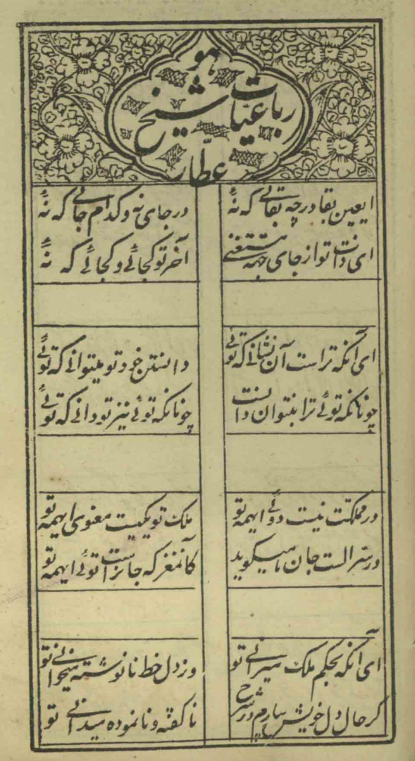 هو
رباعیات شیخ
عطار
ایعین بقا درچه بقائی که نهٔ
در جای نه و کدام جائی که نهٔ
ای ذات تو از جای جهة مستغنی
آخر تو کجائی و کجائی که نهٔ
ای آنکه تراست آن نشانی که توئی
دانستن خود تو میتوانی که توئی
چونانکه توئی ترا بنتوان دانست
چونانکه توئی نیز تو دانی که توئی
در مملکت نیست دوئی ایهمه تو
ملک تو یکیست معنوی ایهمه تو
در سر الست جان ما میگوید
کانمغز که جانراست توئی ایهمه تو
ای آنکه بحکم ملک میرانی تو
وز دل خط نانوشته میخوانی تو
گر حال دل خویش نیارم در شرح
ناگفته و نانموده میدانی تو